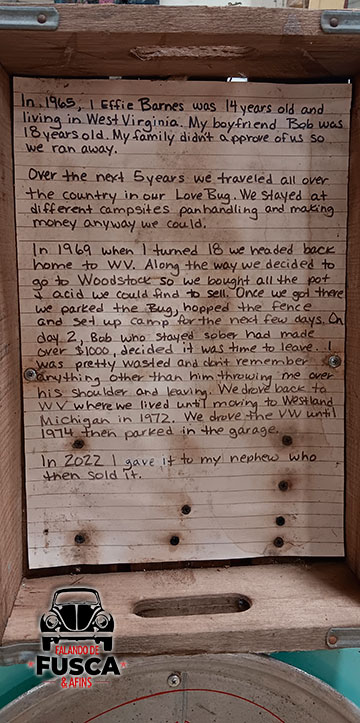 In 1965, I Effie Barnes was 14 years old and
living in West Virginia. My boyfriend Bob was
18 years old. My family didn't approve of us so
we ran away.
Over the next 5 years we traveled all over
the country in our Love Bug. We stayed at
different campsites panhandling and making
money anyway we could.
In 1969 when I turned 18 we headed back
home to WV. Along the way we decided to
go to Woodstock so we bought all the pot
& acid we could find to sell. Once we got there
we parked the Bug, hopped the fence
and set up camp for the next few days. On
day 2, Bob who stayed sober had made
over $1000, decided it was time to leave. I
was pretty wasted and don't remember
anything other than him throwing me over
his shoulder and leaving. We drove back to
WV where we lived until moving to Westland
Michigan in 1972. We drove the VW until
1974 then parked in the garage.
In 2022 I gave it to my nephew who
then sold it.
FALANDO DE
FUSCA
& AFINS